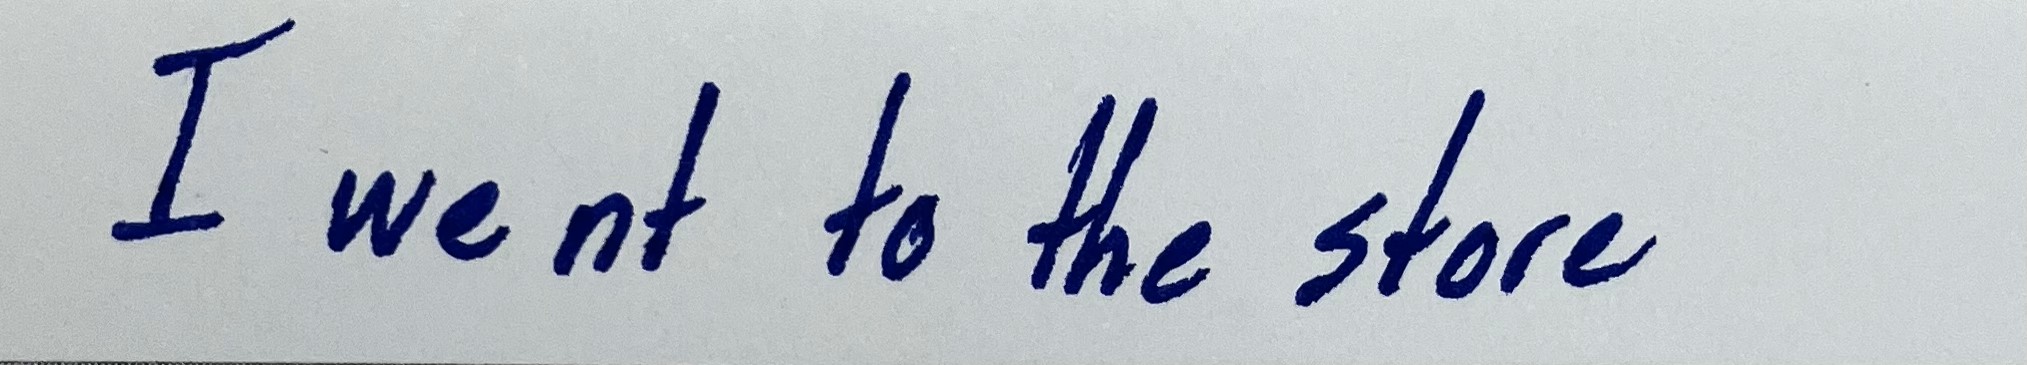 I went to the store